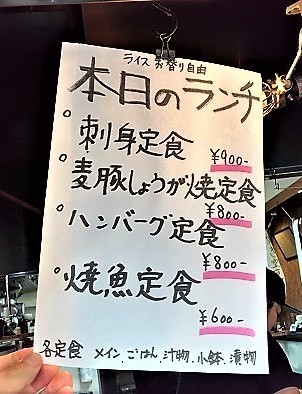 ライス お替り自由
本日のランチ
。刺身定食
¥900-
。麦豚しょうが焼定食
¥800-
。ハンバーグ定食
¥800-
。焼魚定食
¥600-
各定食 メイン、ごはん、汁物、小鉢、漬物